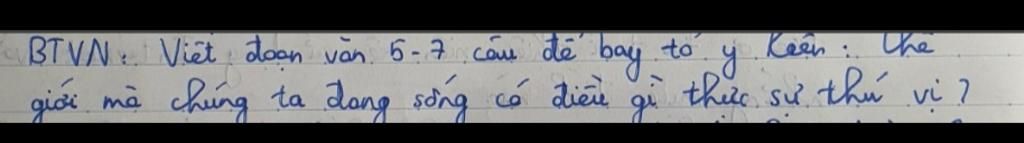 BTVN: Viết đoạn văn 5-7 câu để bay tỏ ý kiến: thế
giới mà chúng ta đang sống có điều gì thực sự thú vị?